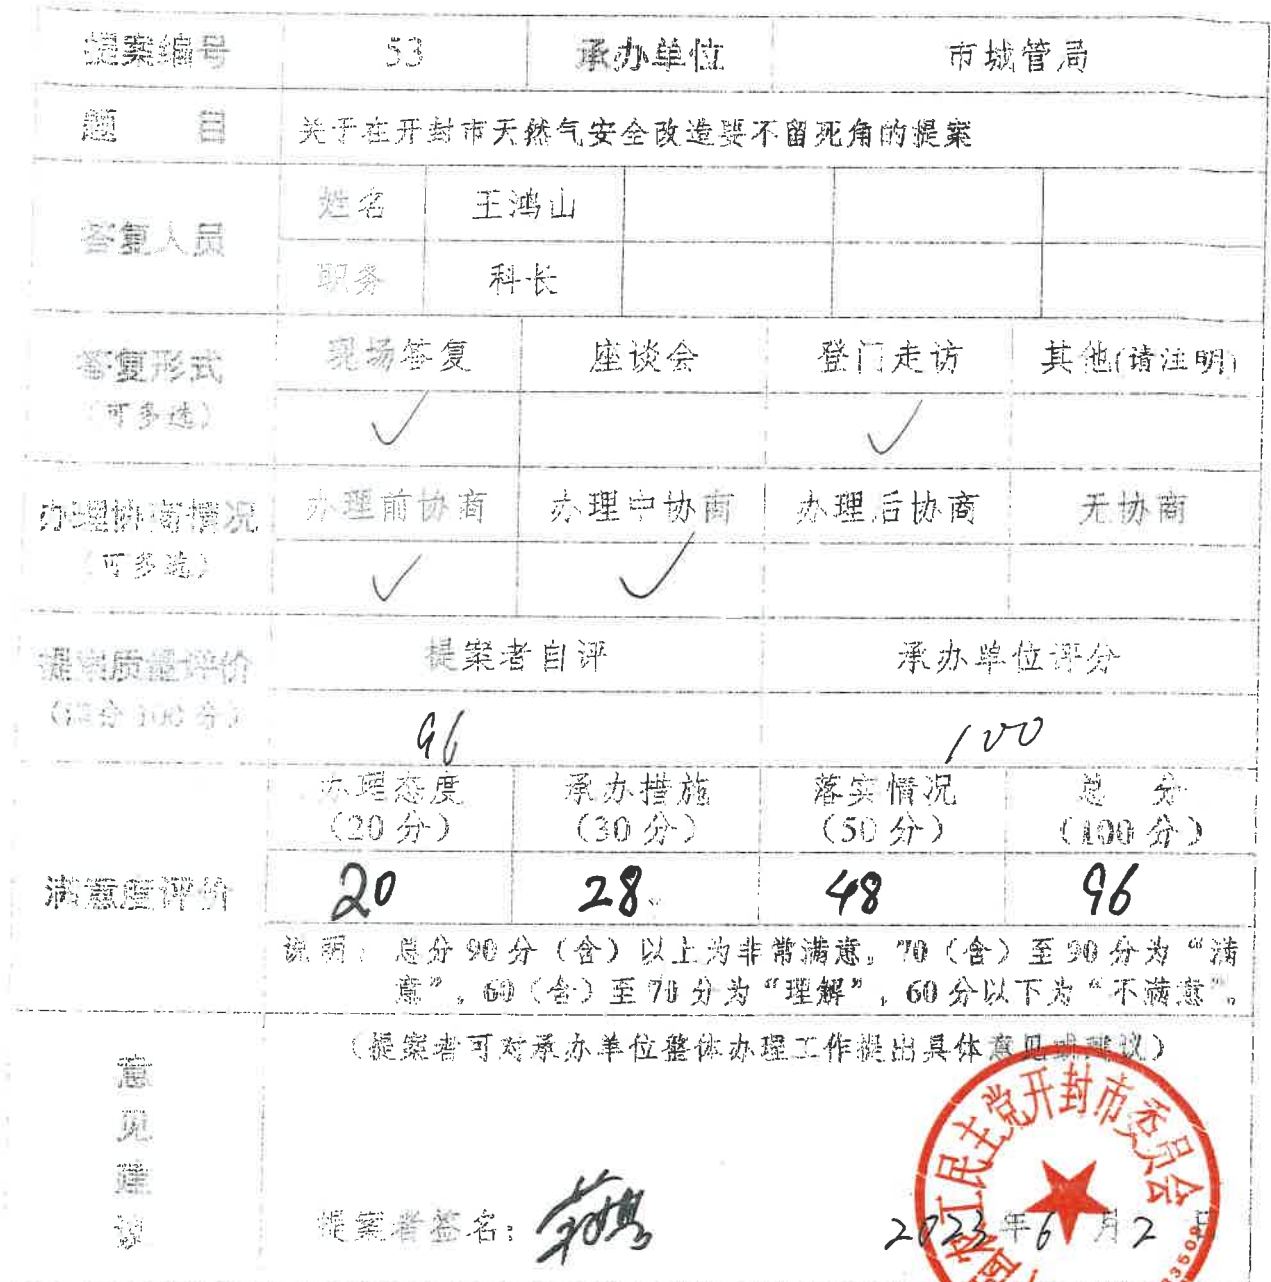 提案编号 53 承办单位 市城管局
题 目 关于在开封市天然气安全改造要不留死角的提案
答复人员 姓名 王鸿山
职务 科长
答复形式 现场答复 座谈会 登门走访 其他(请注明)
（可多选） ✓ ✓
办理协商情况 办理前协商 办理中协商 办理后协商 无协商
（可多选） ✓ ✓
提案质量评价 提案者自评 承办单位评分
（满分 100 分） 96 100
办理态度 承办措施 落实情况 总 分
（20 分） （30 分） （50 分） （100 分）
满意度评价 20 28 48 96
说明：总分 90 分（含）以上为非常满意，70（含）至 90 分为“满
意”，60（含）至 70 分为“理解”，60 分以下为“不满意”。
意见建议 （提案者可对承办单位整体办理工作提出具体意见或建议）
提案者签名： 2023 年 6 月 2 日
农工民主党开封市委员会